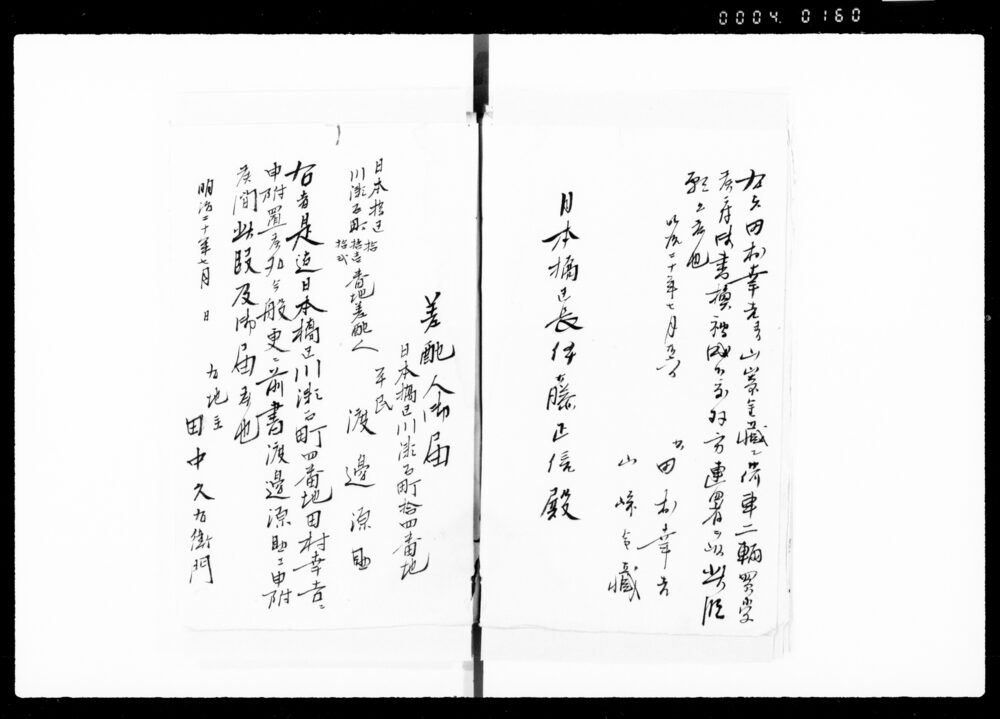 0004 0160
右者田村幸吉山崎金蔵二荷車二輛買受
候ニ付書換 双方連署 以此段
願上候也
明治二十年七月五日
右田村幸吉
山崎金蔵
日本橋区長伊藤正信殿
差配人御届
日本橋区川瀬石町拾四番地
平民
渡邊源助
日本橋区
川瀬石町拾壱拾弐番地差配人
右者是迠日本橋区川瀬石町四番地田村幸吉ニ
申附置候処今般更ニ前書渡邊源助ニ申附
候間此段及御届候也
明治二十年七月 日
右地主
田中久右衛門